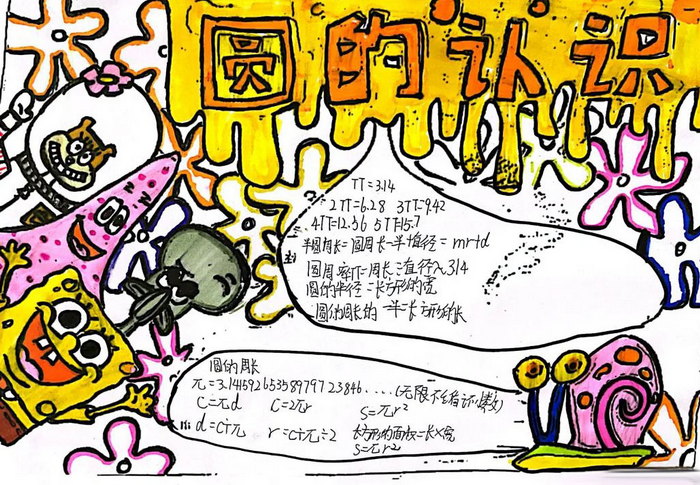 圆的认识
π=3.14
2π=6.28 3π=9.42
4π=12.56 5π=15.7
半圆周长=圆周长一半+直径=πr+d
圆周率 周长=直径×3.14
圆的半径=长方形的宽
圆的周长的一半=长方形的长
圆的周长
π=3.14159265358979723846....(无限不循环小数)
C=πd C=2πr S=πr²
d=C÷π r=C÷π÷2 长方形的面积=长×宽
S=πr²